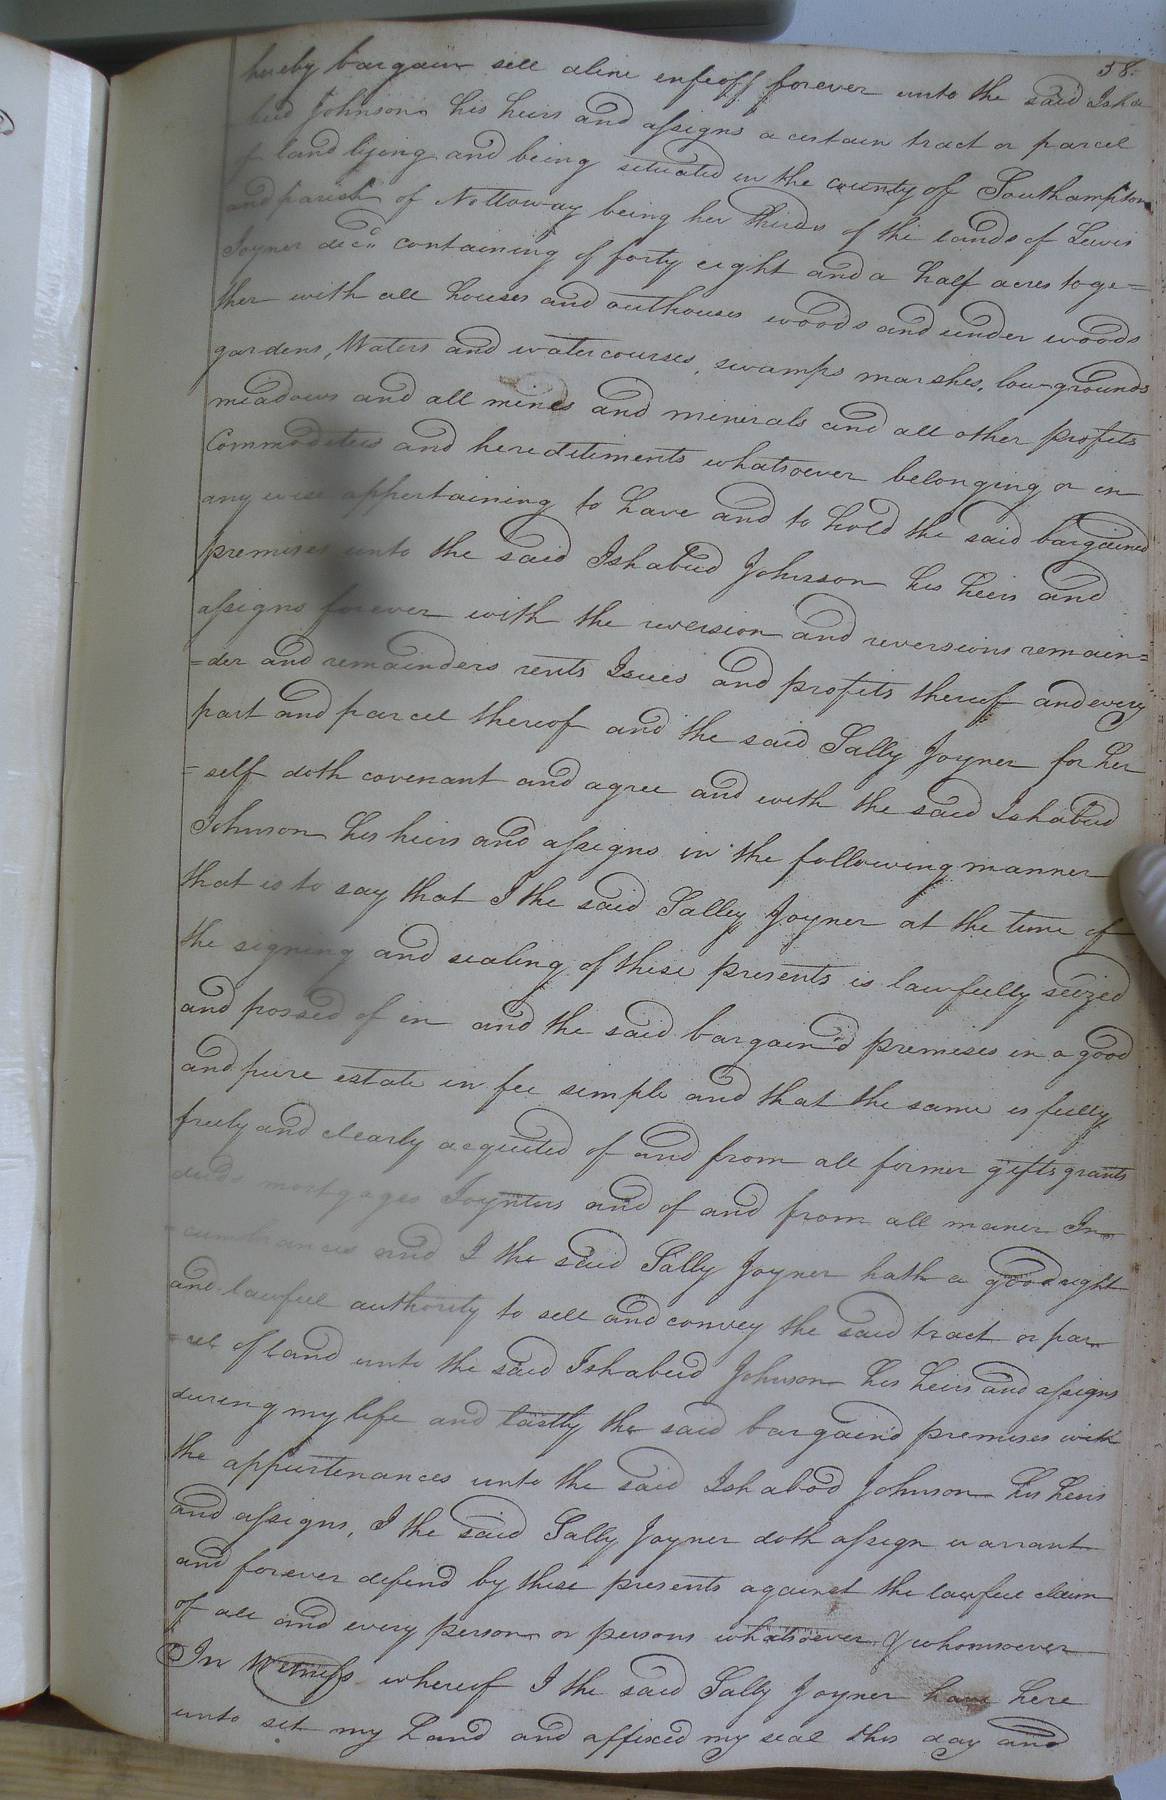 58.
hereby bargain sell aline enfeoff forever unto the said Isha
bud Johnson his heirs and assigns a certain tract or parcel
of land lying and being situated in the county of Southampton
and parish of Nottoway being her thirds of the lands of Lewis
Joyner decd. containing of forty eight and a half acres toge=
ther with all houses and outhouses woods and under woods
gardens, Waters and watercourses, swamps marshes, low grounds
meadows and all mines and minerals and all other profits
Commodeties and hereditiments whatsoever belonging or in
any wise appertaining to have and to hold the said bargained
premises unto the said Ishabud Johnson his heirs and
assigns forever with the reversion and reversions remain=
=der and remainders rents Isues and profits thereof and every
part and parcel thereof and the said Sally Joyner for her
=self doth covenant and agree and with the said Ishabud
Johnson his heirs and assigns in the following manner
that is to say that I the said Salley Joyner at the time of
the signing and sealing of these presents is lawfully seized
and possed of in and the said bargain'd premises in a good
and pure estate in fee simple and that the same is fully
freely and clearly acquited of and from all former gifts grants
deeds mortgages Joynters and of and from all maner In=
=cumbrances and I the said Sally Joyner hath a good right
and lawfull authority to sell and convey the said tract or par
=cel of land unto the said Ishabud Johnson his heirs and assigns
during my life and lastly the said bargain'd premises with
the appurtenances unto the said Ishabod Johnson his heirs
and assigns, I the said Sally Joyner doth assign warrant
and forever defend by these presents against the lawfull claim
of all and every person or persons whatsoever & whomsoever
In Witness whereof I the said Sally Joyner have here
unto set my hand and affixed my seal this day and